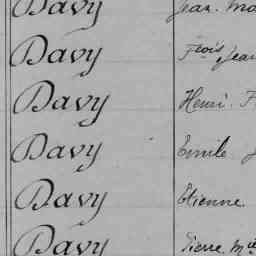 Davy Jean. Ma
Davy Fcois Jean
Davy Henri. F
Davy Emile J
Davy Etienne
Davy Pierre Mie